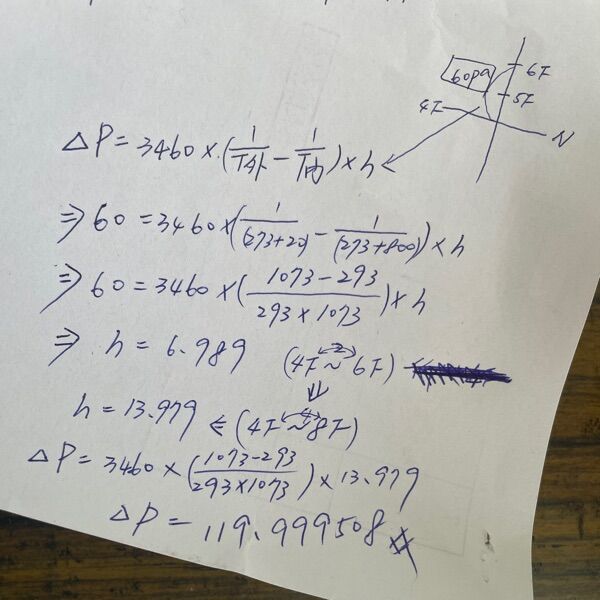 60pa
6F
5F
4F
N
△P = 3460 × (1/T外 - 1/T内) × h
⇒ 60 = 3460 × (1/(273+20) - 1/(273+800)) × h
⇒ 60 = 3460 × (1073-293/293×1073) × h
⇒ h = 6.989 (4F ~ 6F)
2
⇓
h = 13.979 ⇐ (4F ~ 8F)
△P = 3460 × (1073-293/293×1073) × 13.979
△P = 119.999508